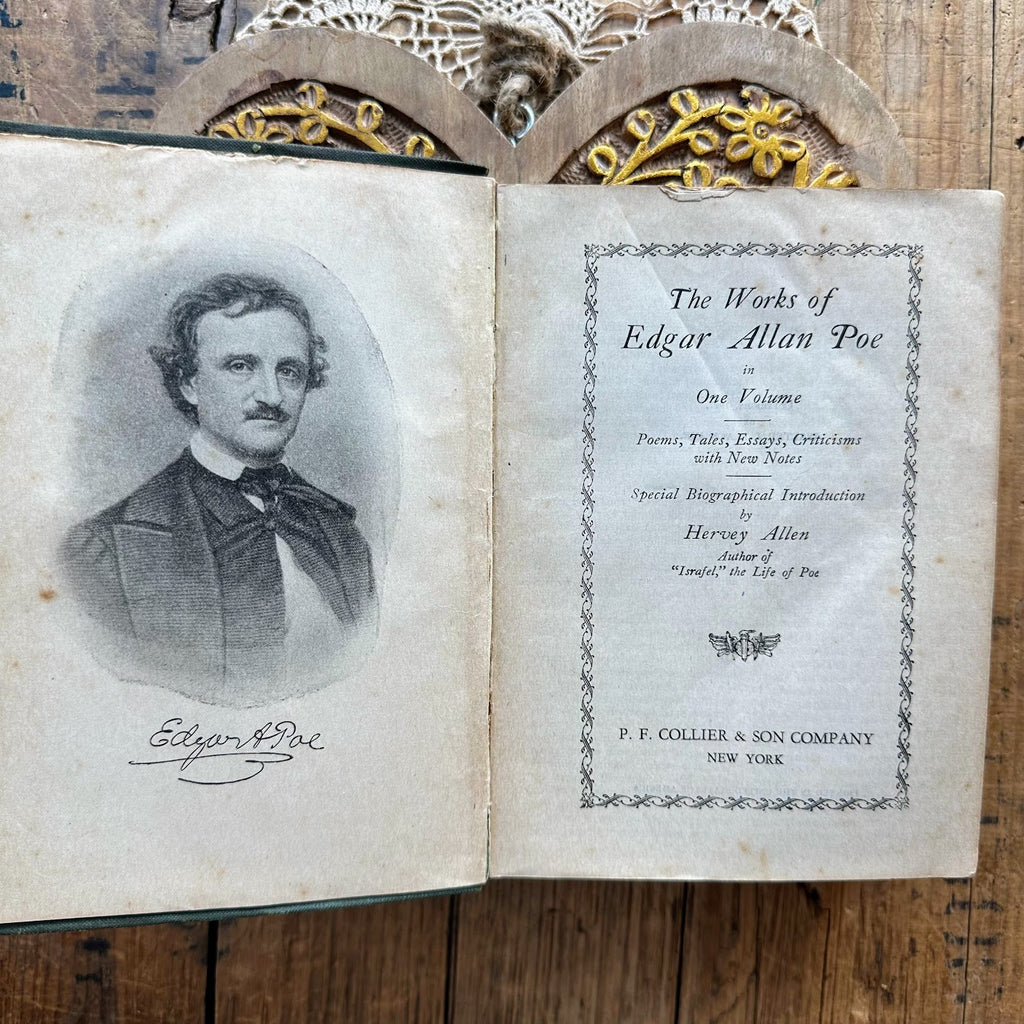 Edgar A Poe
The Works of
Edgar Allan Poe
in
One Volume
Poems, Tales, Essays, Criticisms
with New Notes
Special Biographical Introduction
by
Hervey Allen
Author of
"Israfel," the Life of Poe
P. F. COLLIER & SON COMPANY
NEW YORK